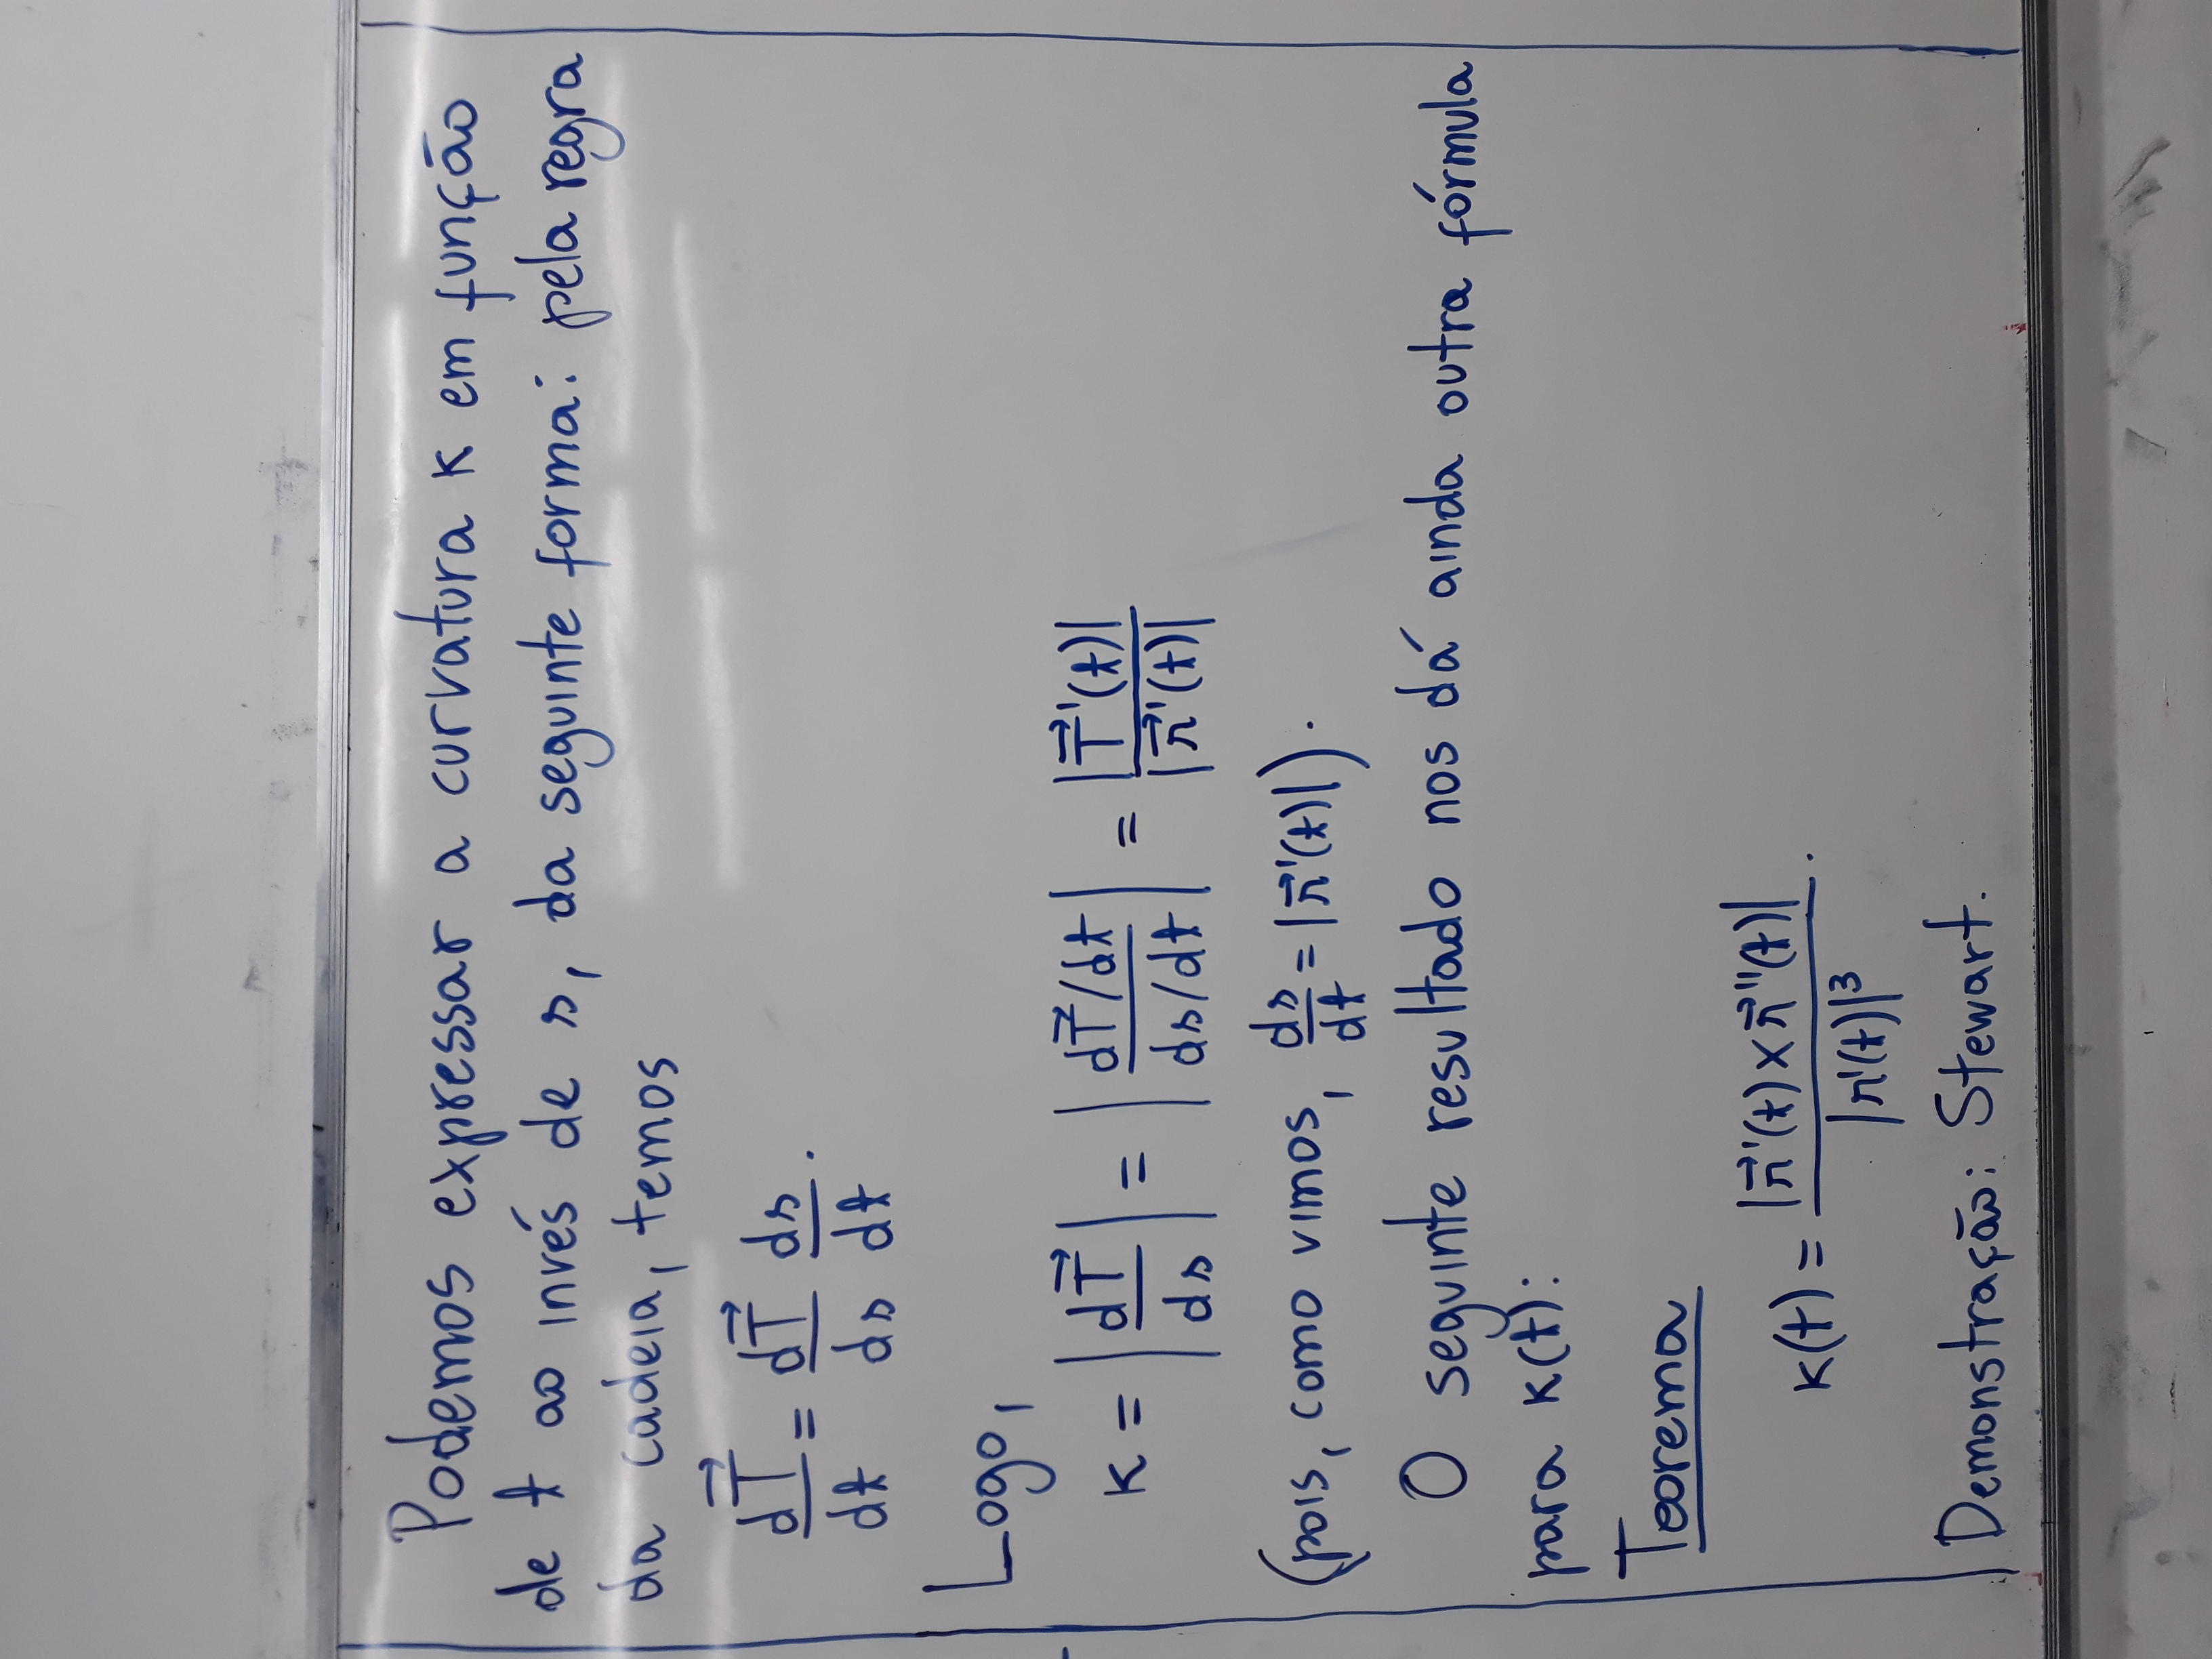 Podemos expressar a curvatura κ em função
de t ao invés de s, da seguinte forma: pela regra
da cadeia, temos
dT⃗/dt = dT⃗/ds ds/dt.
Logo,
κ = |dT⃗/ds| = |(dT⃗/dt)/(ds/dt)| = |T⃗'(t)|/|r⃗'(t)|
(pois, como vimos, ds/dt = |r⃗'(t)|).
O seguinte resultado nos dá ainda outra fórmula
para κ(t):
Teorema
κ(t) = |r⃗'(t) × r⃗''(t)|/|r'(t)|³.
Demonstração: Stewart.